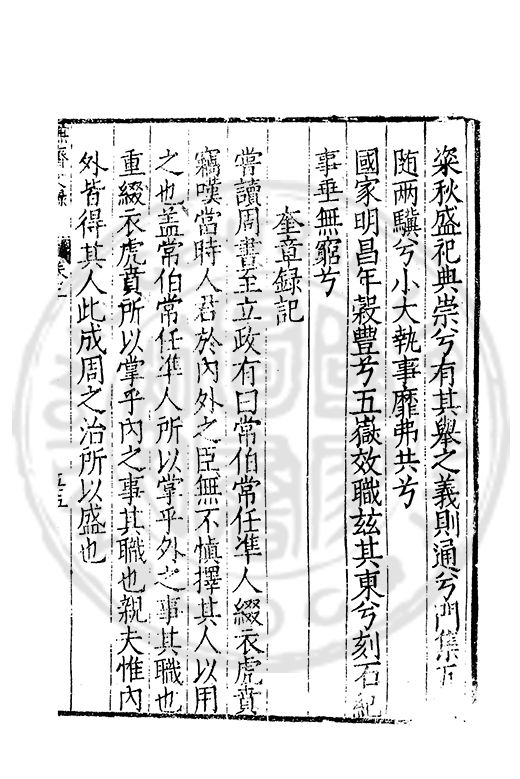 粢秋盛祀典崇兮有其舉之義則通兮門集五
随两驥兮小大執事靡弗共兮
國家明昌年穀豐兮五嶽效職兹其東兮刻石紀
事垂無窮兮
奎章録記
嘗讀周書至立政有曰常伯常任準人綴衣虎賁
竊嘆當時人君於內外之臣無不慎擇其人以用
之也盖常伯常任準人所以掌乎外之事其職也
重綴衣虎賁所以掌乎內之事其職也親夫惟內
外皆得其人此成周之治所以盛也